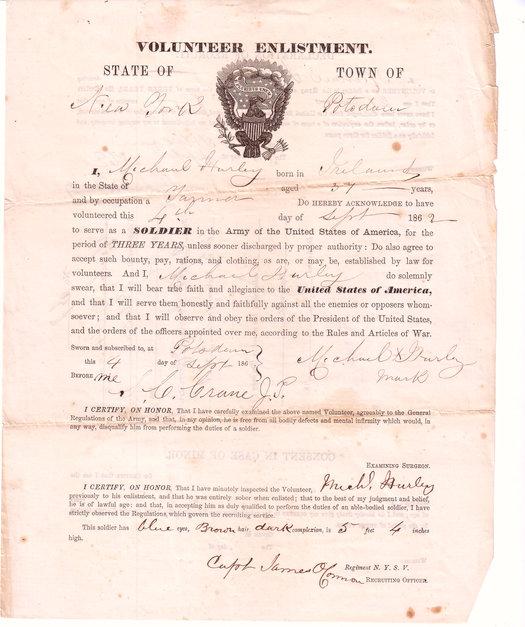 VOLUNTEER ENLISTMENT.
STATE OF TOWN OF
New York Potsdam
I, Michael Hurley born in Ireland
in the State of aged 37 years,
and by occupation a Farmer Do HEREBY ACKNOWLEDGE to have
volunteered this 4th day of Sept 1862
to serve as a SOLDIER in the Army of the United States of America, for the
period of THREE YEARS, unless sooner discharged by proper authority: Do also agree to
accept such bounty, pay, rations, and clothing, as are, or may be, established by law for
volunteers. And I, Michael Hurley do solemnly
swear, that I will bear true faith and allegiance to the United States of America,
and that I will serve them honestly and faithfully against all the enemies or opposers whom-
soever; and that I will observe and obey the orders of the President of the United States,
and the orders of the officers appointed over me, according to the Rules and Articles of War.
Sworn and subscribed to, at Potsdam
this 4 day of Sept 186
Michael X Hurley
mark
BEFORE me
C. Crane J.P.
I CERTIFY, ON HONOR, That I have carefully examined the above named Volunteer, agreeably to the General
Regulations of the Army, and that, in my opinion, he is free from all bodily defects and mental infirmity which would, in
any way, disqualify him from performing the duties of a soldier.
EXAMINING SURGEON.
I CERTIFY, ON HONOR, That I have minutely inspected the Volunteer, Michl. Hurley
previously to his enlistment, and that he was entirely sober when enlisted; that to the best of my judgment and belief,
he is of lawful age; and that, in accepting him as duly qualified to perform the duties of an able-bodied soldier, I have
strictly observed the Regulations, which govern the recruiting service.
This soldier has blue eyes, Brown hair, dark complexion, is 5 feet 4 inches
high.
Capt James O Connor Regiment N. Y. S. V.
RECRUITING OFFICER.